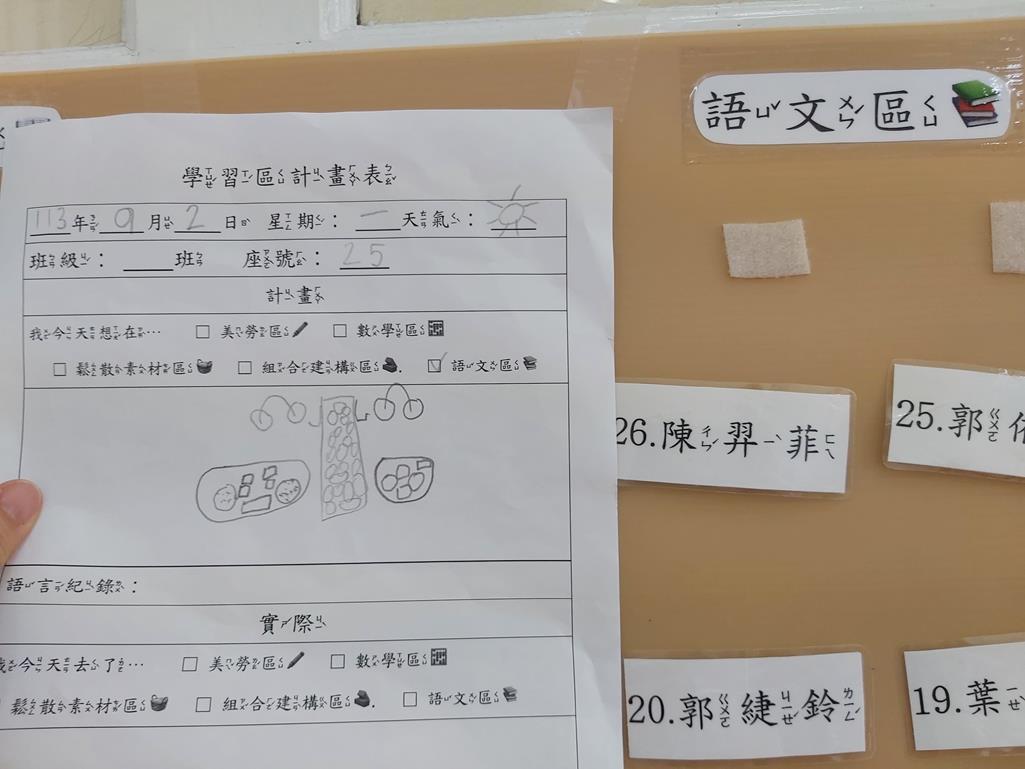 語文區
學習區計畫表
113年9月2日 星期：一天氣：
班級：____班 座號：25
計畫
我今天想在… □ 美勞區 □ 數學區
□ 鬆散素材區 □ 組合建構區. ☑ 語文區
語言紀錄：
實際
我今天去了… □ 美勞區 □ 數學區
鬆散素材區 □ 組合建構區. □ 語文區
26.陳羿菲
25.郭
20.郭緁鈴
19.葉